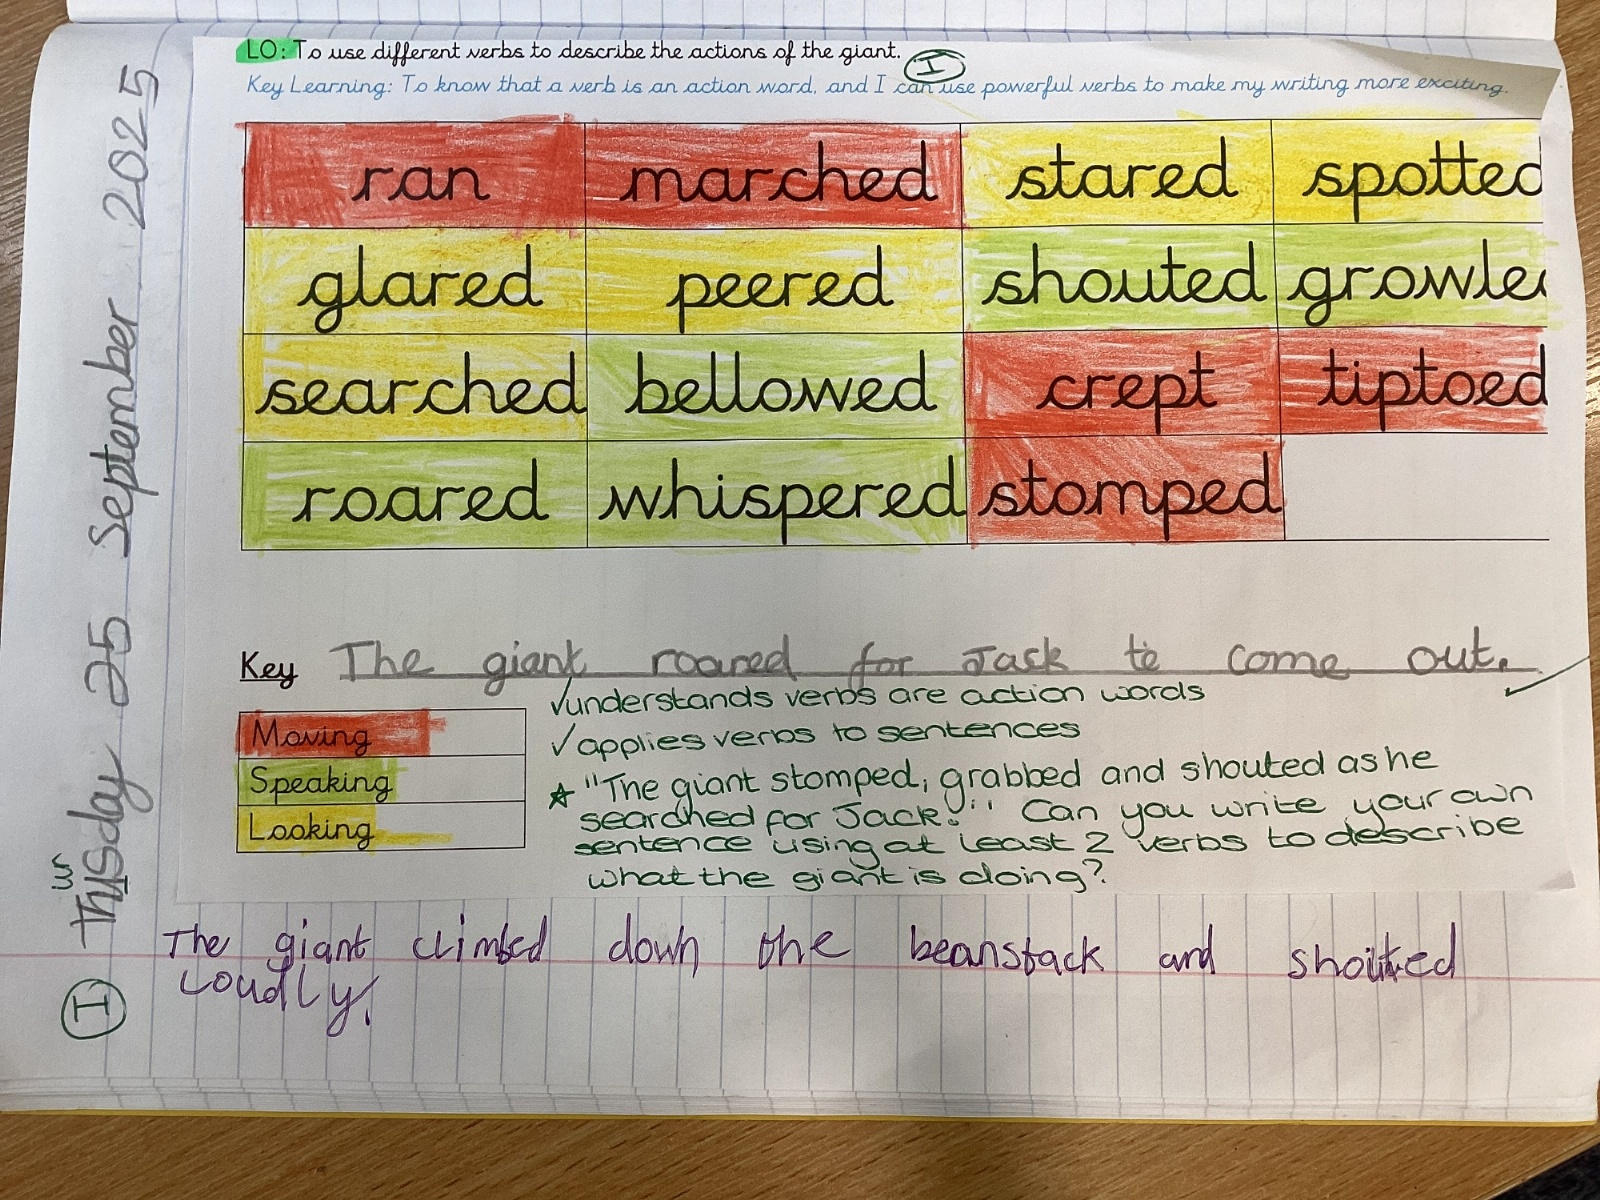 LO: To use different verbs to describe the actions of the giant.
I
Key Learning: To know that a verb is an action word, and I can use powerful verbs to make my writing more exciting.
ran marched stared spotted
glared peered shouted growled
searched bellowed crept tiptoed
roared whispered stomped
Key The giant roared for Jack to come out.
Moving
Speaking
Looking
✓understands verbs are action words
✓applies verbs to sentences
☆ "The giant stomped, grabbed and shouted as he
searched for Jack." Can you write your own
sentence using at least 2 verbs to describe
what the giant is doing?
The giant climbed down the beanstack and shouted
loudly.
Thusday 25 September 2025
I